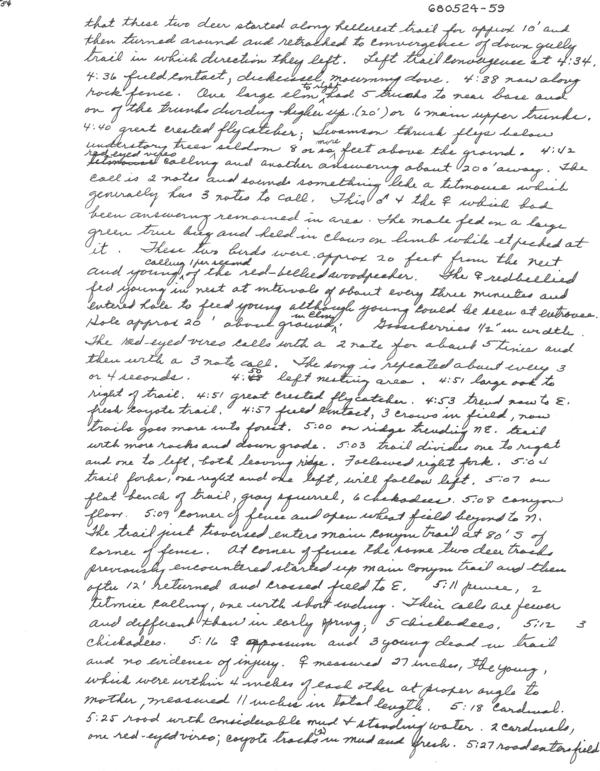 54
680524-59
that these two deer started along hillcrest trail for approx 10' and
then turned around and retracked to convergence of down gully
trail in which direction they left. Left trail convergence at 4:34.
4:36 field contact, dickcissel, mourning dove. 4:38 now along
rock fence. One large elm to right had 5 trunks to near base and
on of the trunks dividing higher up (20') or 6 main upper trunks.
4:40 great crested flycatcher; Swainson thrush flys below
understory trees seldom 8 or so more feet above the ground. 4:42
red eyed vireo calling and another answering about 200' away. The
call is 2 notes and sounds something like a titmouse which
generally has 3 notes to call. This ♂ & the ♀ which had
been answering remained in area. The male fed on a large
green true bug and held in claws on limb while it pecked at
it. These two birds were approx 20 feet from the nest
and young calling 1 per second of the red-bellied woodpecker. The ♀ redbellied
fed young in nest at intervals of about every three minutes and
entered hole to feed young although young could be seen at entrance.
Hole approx 20' above ground in elm. Gooseberries 1/2" in width.
The red-eyed vireo calls with a 2 note for about 5 times and
then with a 3 note call. The song is repeated about every 3
or 4 seconds. 4:50 left nesting area. 4:51 large oak to
right of trail. 4:51 great crested flycatcher. 4:53 trend now to E.
fresh coyote trail. 4:57 field contact, 3 crows in field, now
trails goes more into forest. 5:00 on ridge trending NE. trail
with more rocks and down grade. 5:03 trail divides one to right
and one to left, both leaving ridge. Followed right fork. 5:04
trail forks, one right and one left, will follow left. 5:07 on
flat bench of trail, gray squirrel, 6 chickadees. 5:08 canyon
floor. 5:09 corner of fence and open wheat field beyond to N.
The trail just traversed enters main canyon trail at 80' S of
corner of fence. At corner of fence the same two deer tracks
previously encountered started up main canyon trail and then
after 12' returned and crossed field to E. 5:11 pewee, 2
titmice calling, one with short ending. Their calls are fewer
and different than in early spring; 5 chickadees. 5:12 3
chickadees. 5:16 ♀ opossum and 3 young dead in trail
and no evidence of injury. ♀ measured 27 inches, the young,
which were within 4 inches of each other at proper angle to
mother, measured 11 inches in total length. 5:18 Cardinal.
5:25 road with considerable mud & standing water. 2 cardinals,
one red-eyed vireo; coyote tracks (2) in mud and fresh. 5:27 road enters field